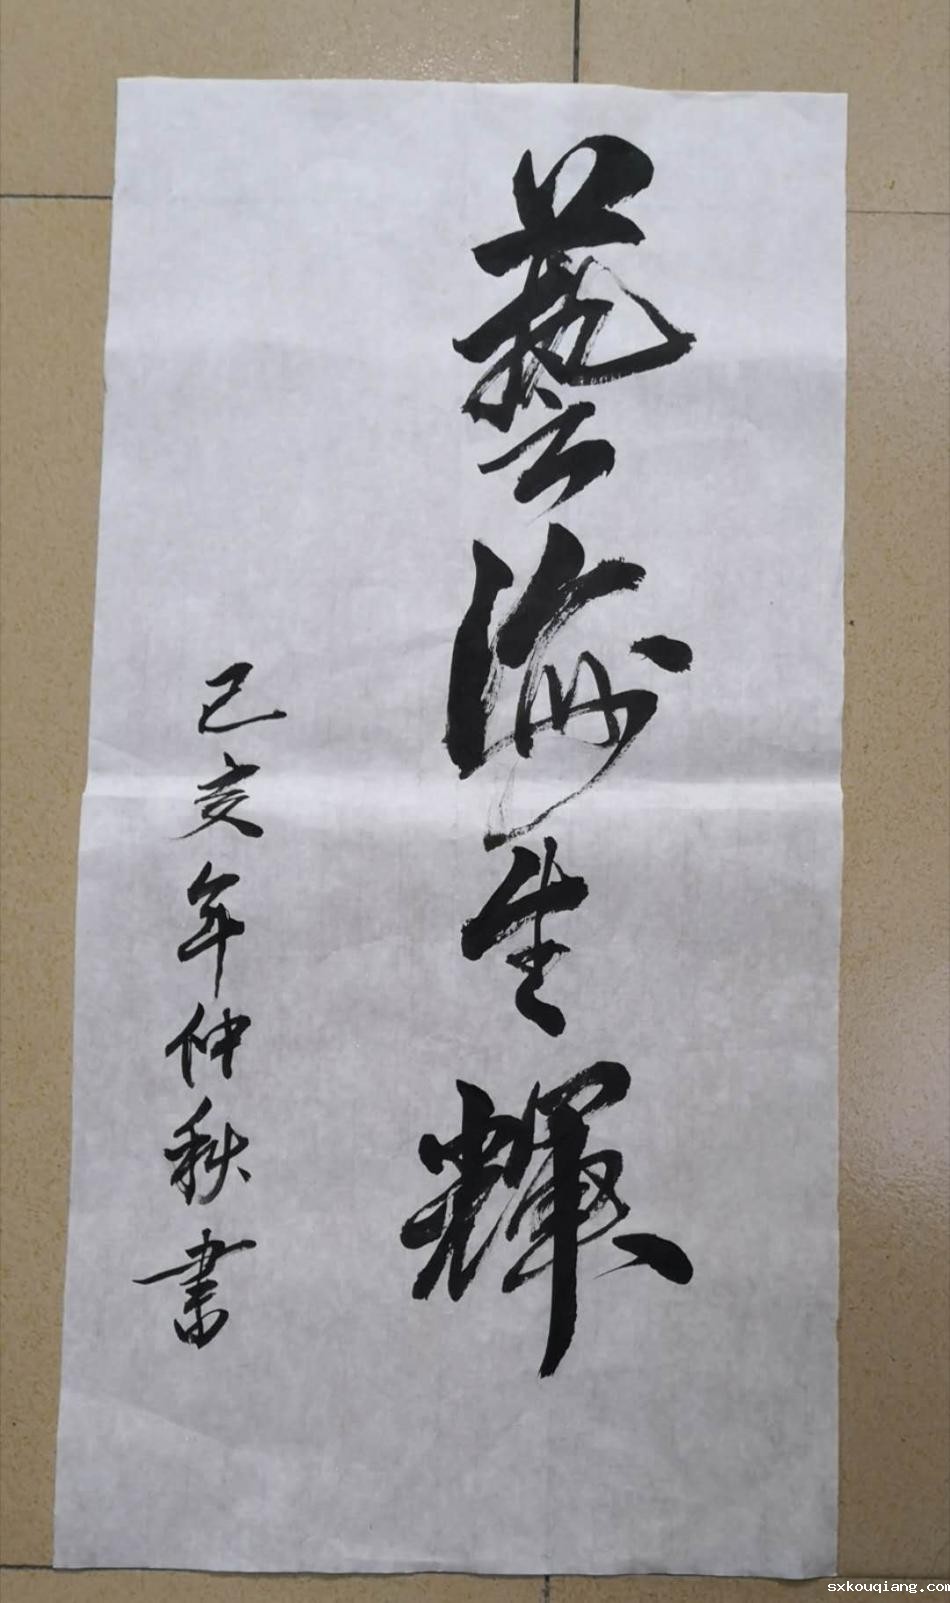 藝海生輝
己亥年仲秋書
sxkouqiang.com